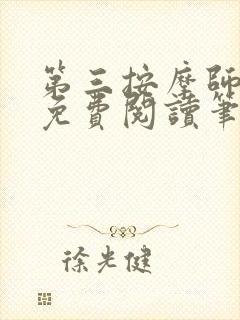 第三按摩師
免費閱讀筆
徐光健